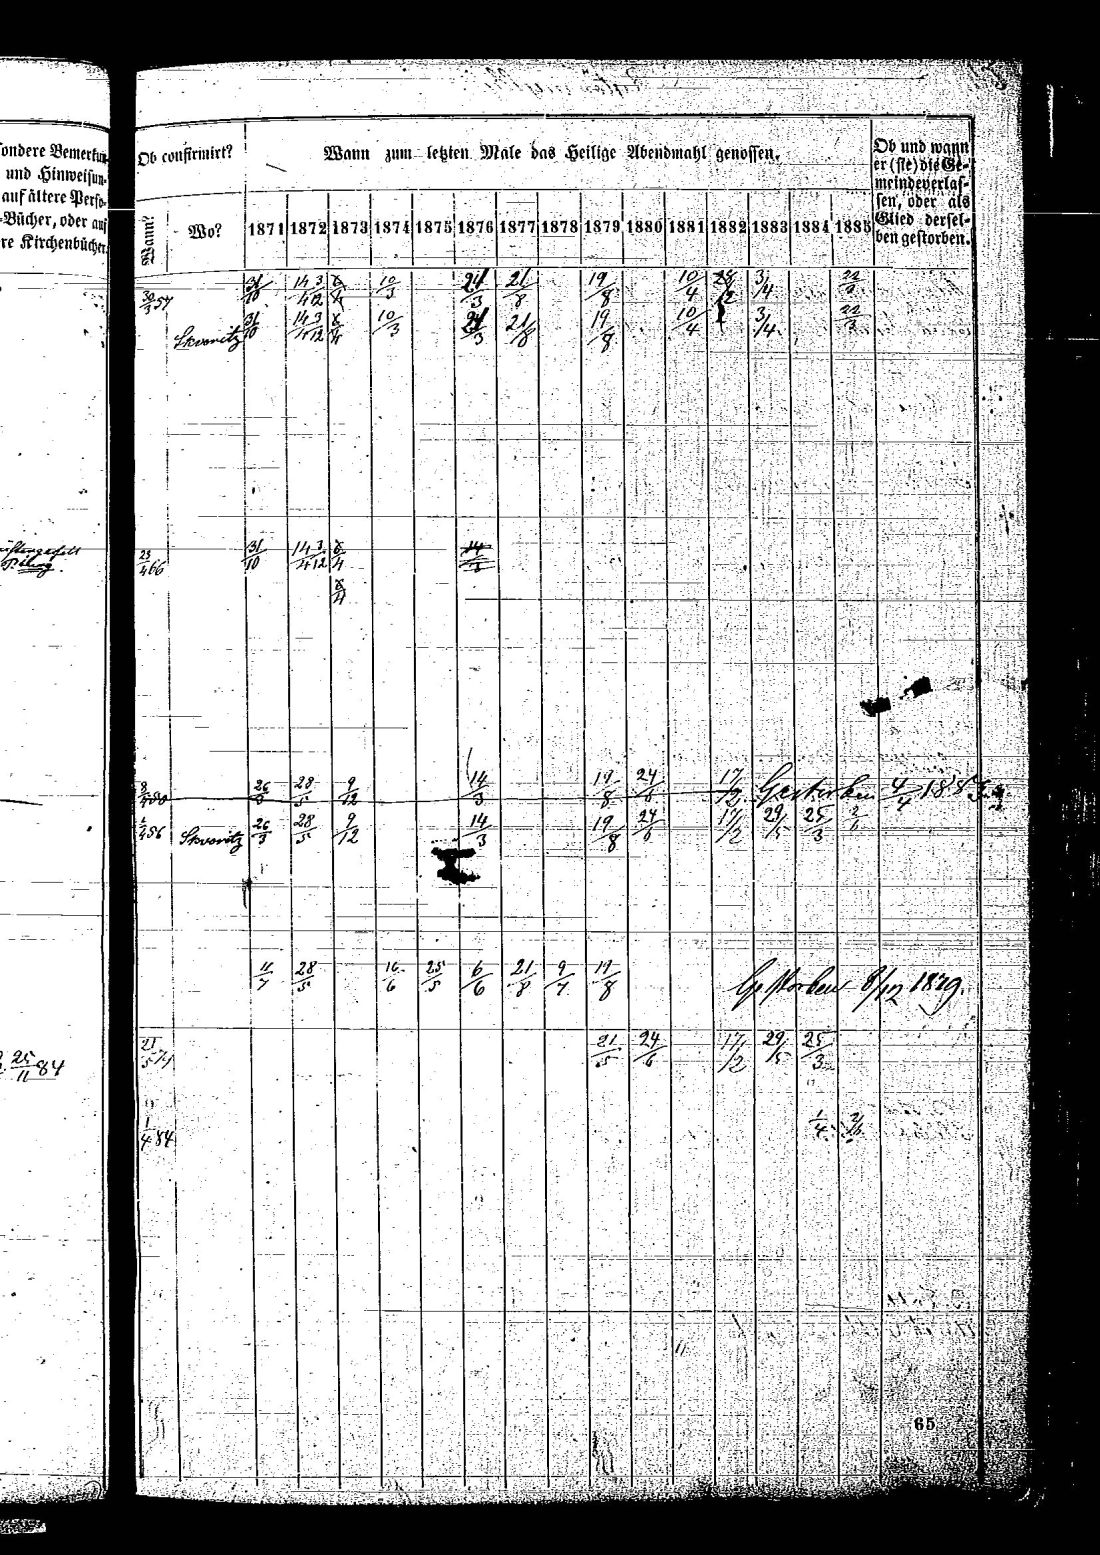 ondere Bemerkun-
und Hinweisun-
auf ältere Perso-
-Bücher, oder auf
re Kirchenbücher.
Ob confirmirt?
Wann zum letzten Male das Heilige Abendmahl genossen.
Ob und wann
er (sie) die Ge-
meinde verlas-
sen, oder als
Glied dersel-
ben gestorben.
Wann? Wo? 1871 1872 1873 1874 1875 1876 1877 1878 1879 1880 1881 1882 1883 1884 1885
30/3 57 31/10 14/4 3/12 8/4 10/3 21/3 21/8 19/8 10/4 28/12 3/4
Skworitz 31/10 14/4 3/12 8/4 10/3 21/3 21/8 19/8 10/4 3/4 22/3
23/4 66 31/10 14/4 3/12 8/4 14/3
8/4
26/3 28/5 9/12 14/3 19/8 24/6 17/2 Gestorben 4/4 1883
1/4 56 Skworitz 26/3 28/5 9/12 14/3 19/8 24/6 17/2 29/5 25/3 2/6
11/7 28/5 16/6 25/5 6/6 21/8 9/7 19/8 Gestorben 8/12 1879.
25/11 84
21/5 74 21/5 24/6 17/2 29/5 25/3
1/4 84 1/4 2/6
65